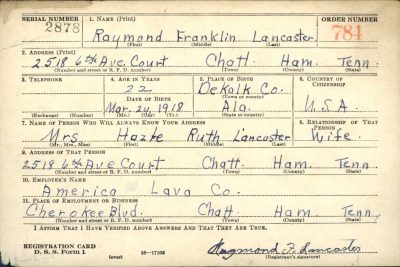 SERIAL NUMBER 1. NAME (Print) ORDER NUMBER
2878 Raymond Franklin Lancaster 784
(First) (Middle) (Last)
2. ADDRESS (Print)
2518 6th Ave Court Chatt. Ham. Tenn.
(Number and street or R. F. D. number) (Town) (County) (State)
3. TELEPHONE 4. AGE IN YEARS 5. PLACE OF BIRTH 6. COUNTRY OF CITIZENSHIP
22 DeKalk Co.
DATE OF BIRTH (Town or county)
Mar. 24 1918 Ala. U.S.A.
(Exchange) (Number) (Mo.) (Day) (Yr.) (State or country)
7. NAME OF PERSON WHO WILL ALWAYS KNOW YOUR ADDRESS 8. RELATIONSHIP OF THAT PERSON
Mrs. Hazle Ruth Lancaster Wife.
(Mr., Mrs., Miss) (First) (Middle) (Last)
9. ADDRESS OF THAT PERSON
2518 6th Ave Court Chatt. Ham. Tenn.
(Number and street or R. F. D. number) (Town) (County) (State)
10. EMPLOYER'S NAME
America Lava Co.
11. PLACE OF EMPLOYMENT OR BUSINESS
Cherokee Blvd. Chatt. Ham. Tenn.
(Number and street or R. F. D. number) (Town) (County) (State)
I AFFIRM THAT I HAVE VERIFIED ABOVE ANSWERS AND THAT THEY ARE TRUE.
REGISTRATION CARD
D. S. S. Form 1 (over) Raymond F. Lancaster
(Registrant's signature)